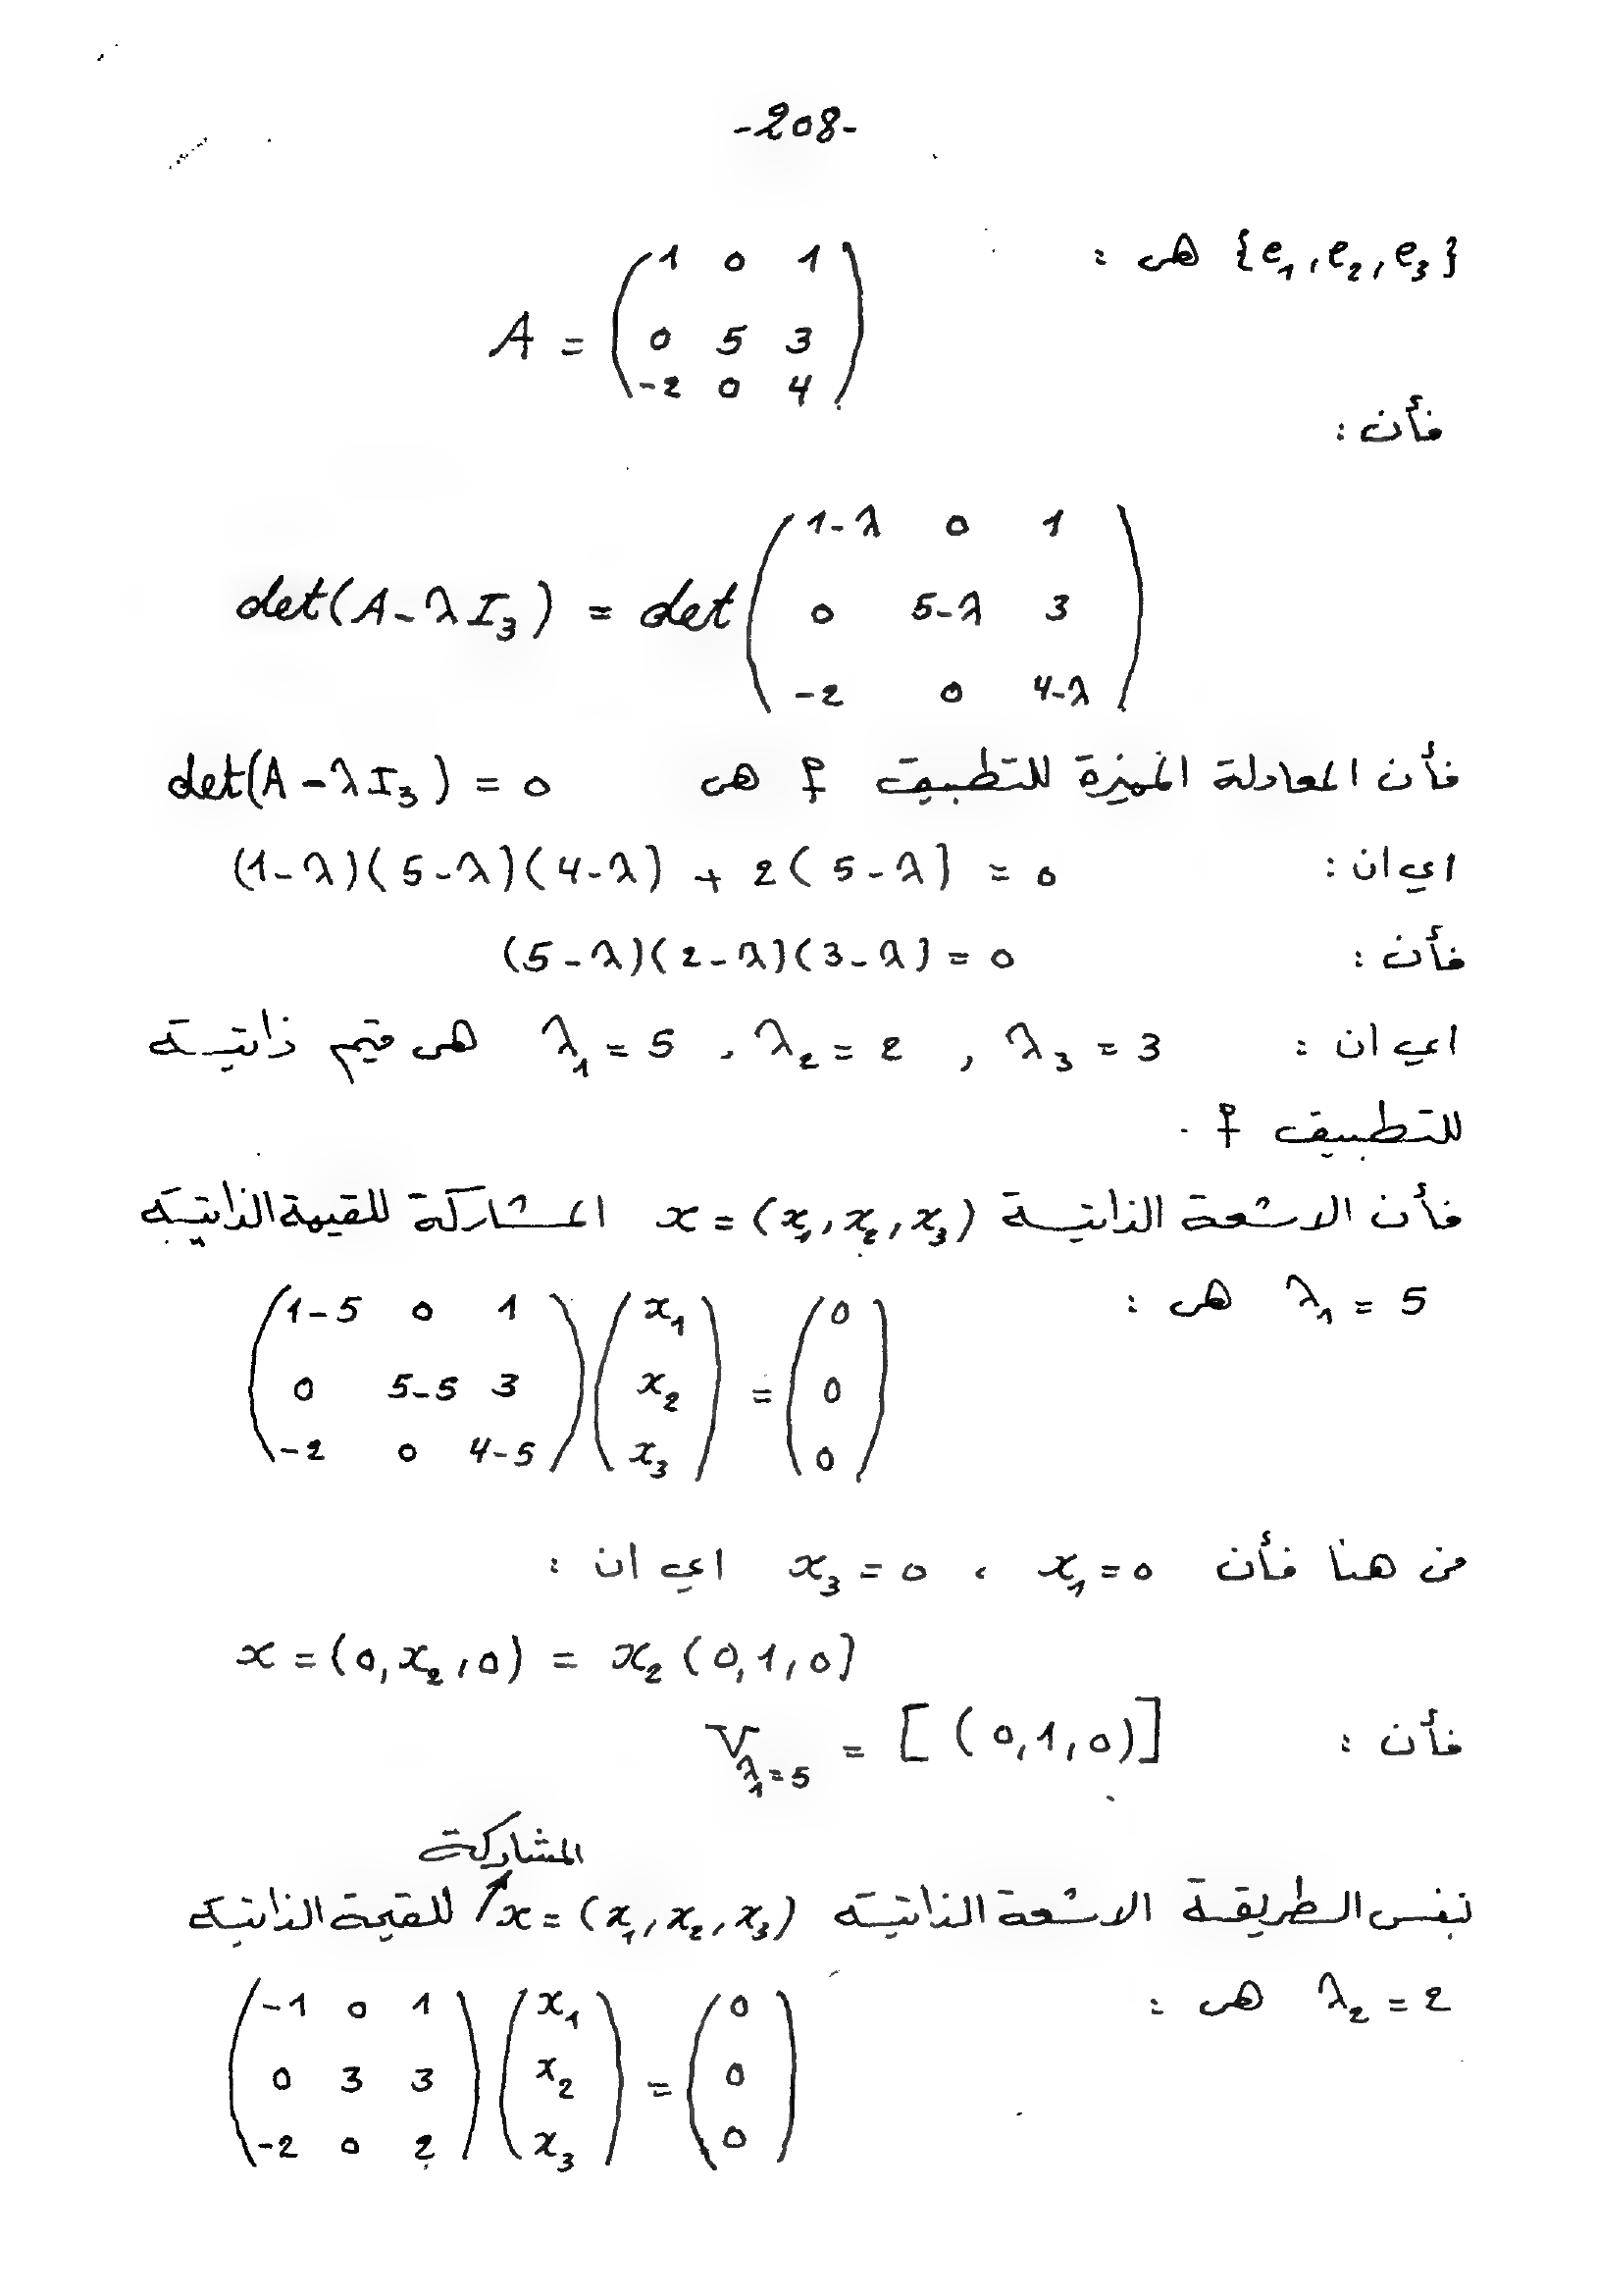 -208-
{e₁, e₂, e₃} هى :
A = \begin{pmatrix} 1 & 0 & 1 \\ 0 & 5 & 3 \\ -2 & 0 & 4 \end{pmatrix}
فأن :
det(A-λI₃) = det \begin{pmatrix} 1-λ & 0 & 1 \\ 0 & 5-λ & 3 \\ -2 & 0 & 4-λ \end{pmatrix}
فأن المعادلة المميزة للتطبيق f هى det(A-λI₃) = 0
اي ان : (1-λ)(5-λ)(4-λ) + 2(5-λ) = 0
فأن : (5-λ)(2-λ)(3-λ) = 0
اي ان : λ₁ = 5 , λ₂ = 2 , λ₃ = 3 هى قيم ذاتية
للتطبيق f .
فأن الاشعة الذاتية x = (x₁, x₂, x₃) المشاركة للقيمة الذاتية
λ₁ = 5 هى :
\begin{pmatrix} 1-5 & 0 & 1 \\ 0 & 5-5 & 3 \\ -2 & 0 & 4-5 \end{pmatrix} \begin{pmatrix} x₁ \\ x₂ \\ x₃ \end{pmatrix} = \begin{pmatrix} 0 \\ 0 \\ 0 \end{pmatrix}
من هنا فأن x₁ = 0 ، x₃ = 0 اي ان :
x = (0, x₂, 0) = x₂ (0, 1, 0)
فأن : V_{λ₁=5} = [(0, 1, 0)]
نفس الطريقة الاشعة الذاتية x = (x₁, x₂, x₃) المشاركة للقيمة الذاتية
λ₂ = 2 هى :
\begin{pmatrix} -1 & 0 & 1 \\ 0 & 3 & 3 \\ -2 & 0 & 2 \end{pmatrix} \begin{pmatrix} x₁ \\ x₂ \\ x₃ \end{pmatrix} = \begin{pmatrix} 0 \\ 0 \\ 0 \end{pmatrix}